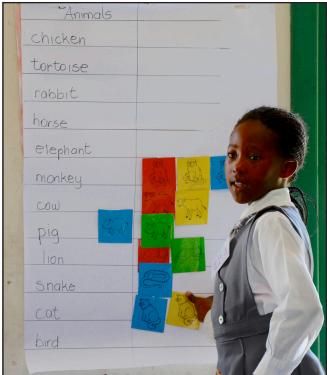 Animals
chicken
tortoise
rabbit
horse
elephant
monkey
cow
pig
lion
snake
cat
bird